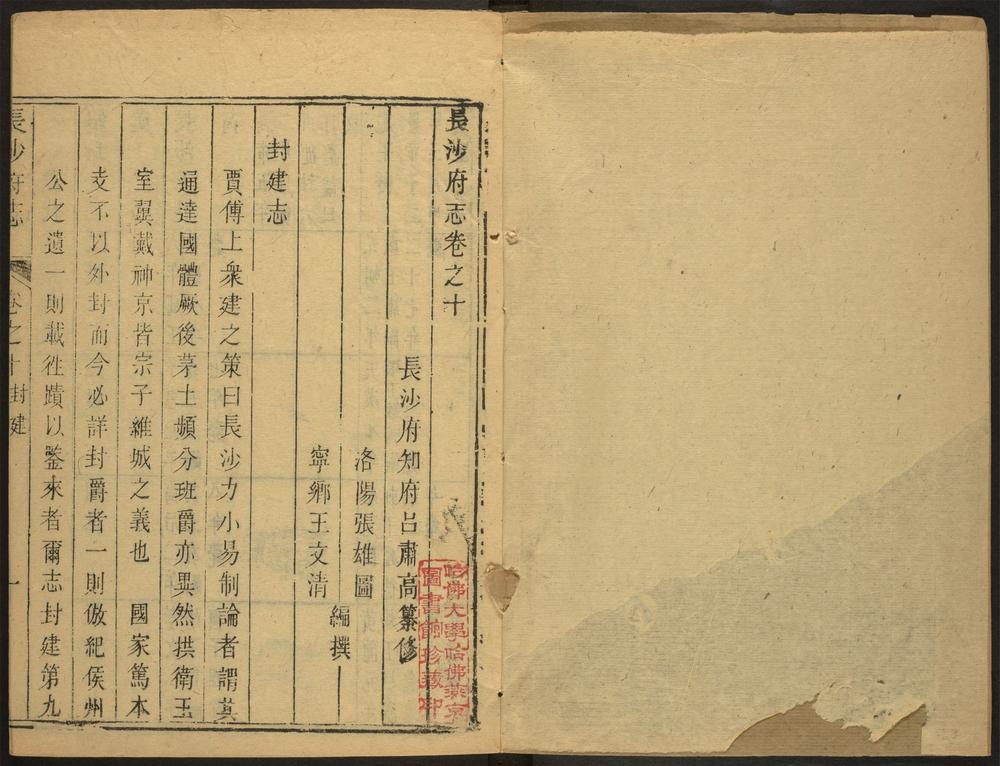 長沙府志卷之十
長沙府知府呂肅高纂修
洛陽張雄圖
寧鄉王文清
編撰
封建志
賈傅上衆建之策曰長沙力小易制論者謂其
通達國體厥後茅土頻分班爵亦異然拱衛王
室翼戴神京皆宗子維城之義也 國家篤本
支不以外封而今必詳封爵者一則倣紀侯州
公之遺一則載徃蹟以鍳來者爾志封建第九
長沙府志 卷之十封建 一
哈佛大學哈佛燕京
圖書館珍藏印